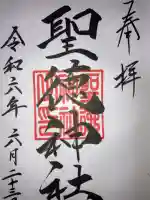 奉拝
聖徳神社
令和六年六月二十三